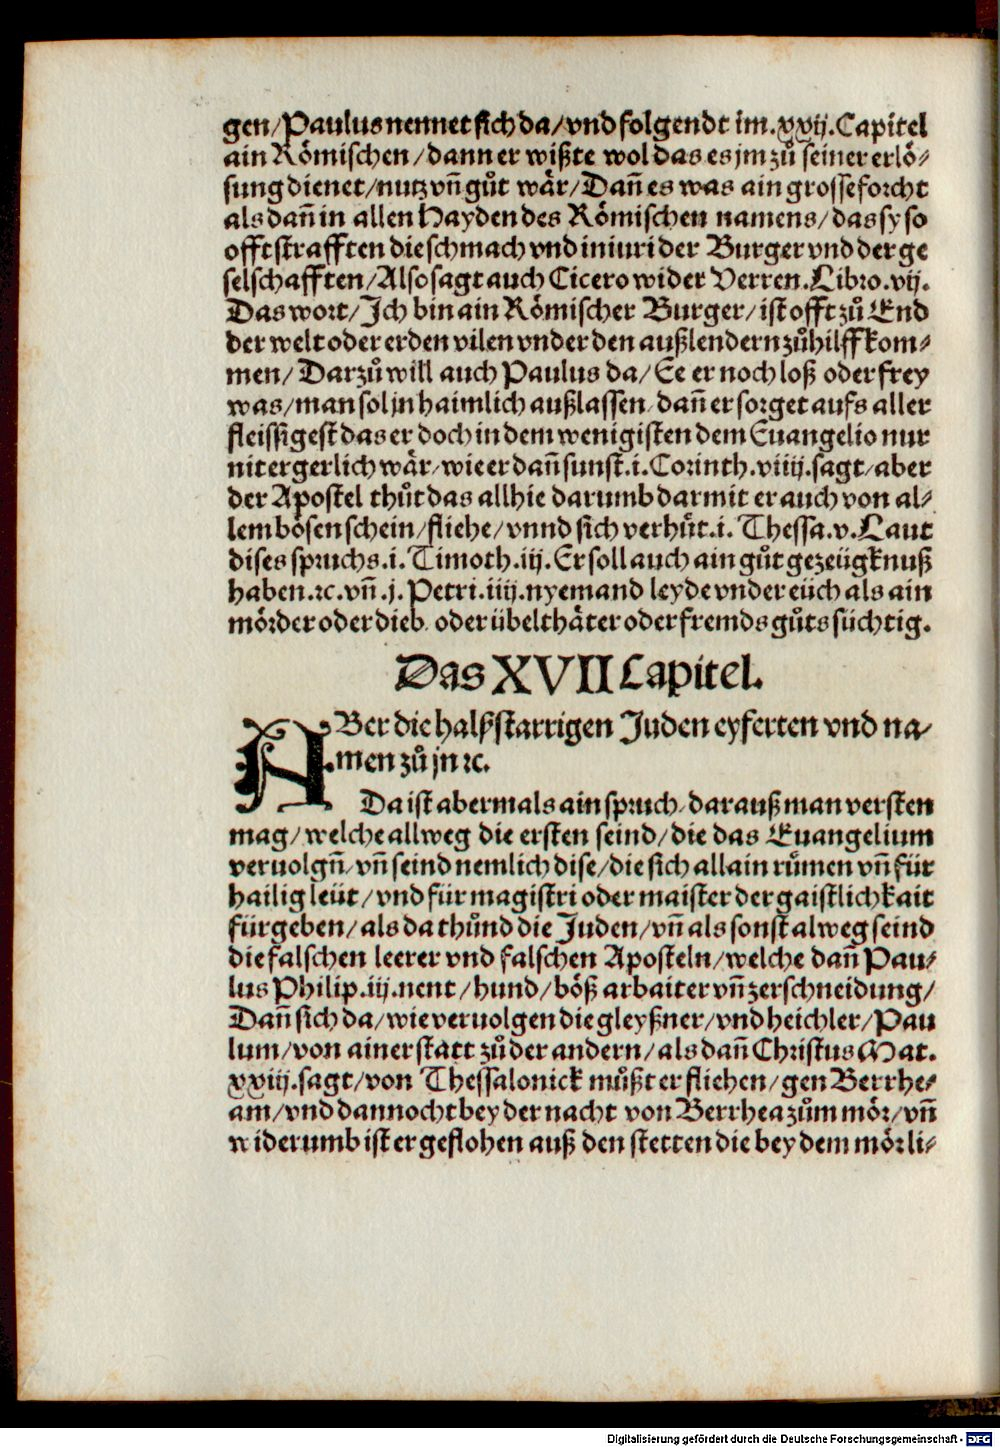 gen/Paulus nennet sich da/vnd folgendt im.xxij.Capitel
ain Roͤmischen/dann er wißte wol das es jm zuͦ seiner erloͤ-
sung dienet/nutz vn̄ guͦt waͤr/Dan̄ es was ain grosse forcht
als dan̄ in allen Hayden des Roͤmischen namens/das sy so
offt strafften die schmach vnd iniuri der Burger vnd der ge
selschafften/Also sagt auch Cicero wider Verren.Libro.vij.
Das wort/Ich bin ain Roͤmischer Burger/ist offt zuͦ End
der welt oder erden vilen vnder den außlendern zuͦ hilff kom-
men/Darzuͦ will auch Paulus da/Ee er noch loß oder frey
was/man sol jn haimlich außlassen/dan̄ er sorget aufs aller
fleissigest das er doch in dem wenigisten dem Euangelio nur
nit ergerlich waͤr/wie er dan̄ sunst.i.Corinth.viiij.sagt/aber
der Apostel thuͦt das allhie darumb darmit er auch von al-
lem boͤsen schein/fliehe/vnnd sich verhuͤt.i.Thessa.v.Laut
dises spruchs.i.Timoth.iij.Er soll auch ain guͦt gezeügknuß
haben.ꝛc.vn̄.j.Petri.iiij.nyemand leyde vnder eüch als ain
moͤrder oder dieb/oder übelthaͤter oder fremds guͦts süchtig.
Das XVII Capitel.
ABer die halßstarrigen Juden eyferten vnd na-
men zuͦ jn ꝛc.
Da ist abermals ain spruch/darauß man versten
mag/welche allweg die ersten seind/die das Euangelium
veruolgn̄/vn̄ seind nemlich dise/die sich allain ruͤmen vn̄ für
hailig leüt/vnd für magistri oder maister der gaistlichkait
fürgeben/als da thuͦnd die Juden/vn̄ als sonst alweg seind
die falschen leerer vnd falschen Aposteln/welche dan̄ Pau-
lus Philip.iij.nent/hund/boͤß arbaiter vn̄ zerschneidung/
Dan̄ sich da/wie veruolgen die gleyßner/vnd heichler/Pau
lum/von ainer statt zuͦ der andern/als dan̄ Christus Mat.
xxiij.sagt/von Thessalonick muͤßt er fliehen/gen Berrhe-
am/vnd dannocht bey der nacht von Berrhea zuͦm moͤr/vn̄
widerumb ist er geflohen auß den stetten die bey dem moͤr li-
Digitalisierung gefördert durch die Deutsche Forschungsgemeinschaft - DFG